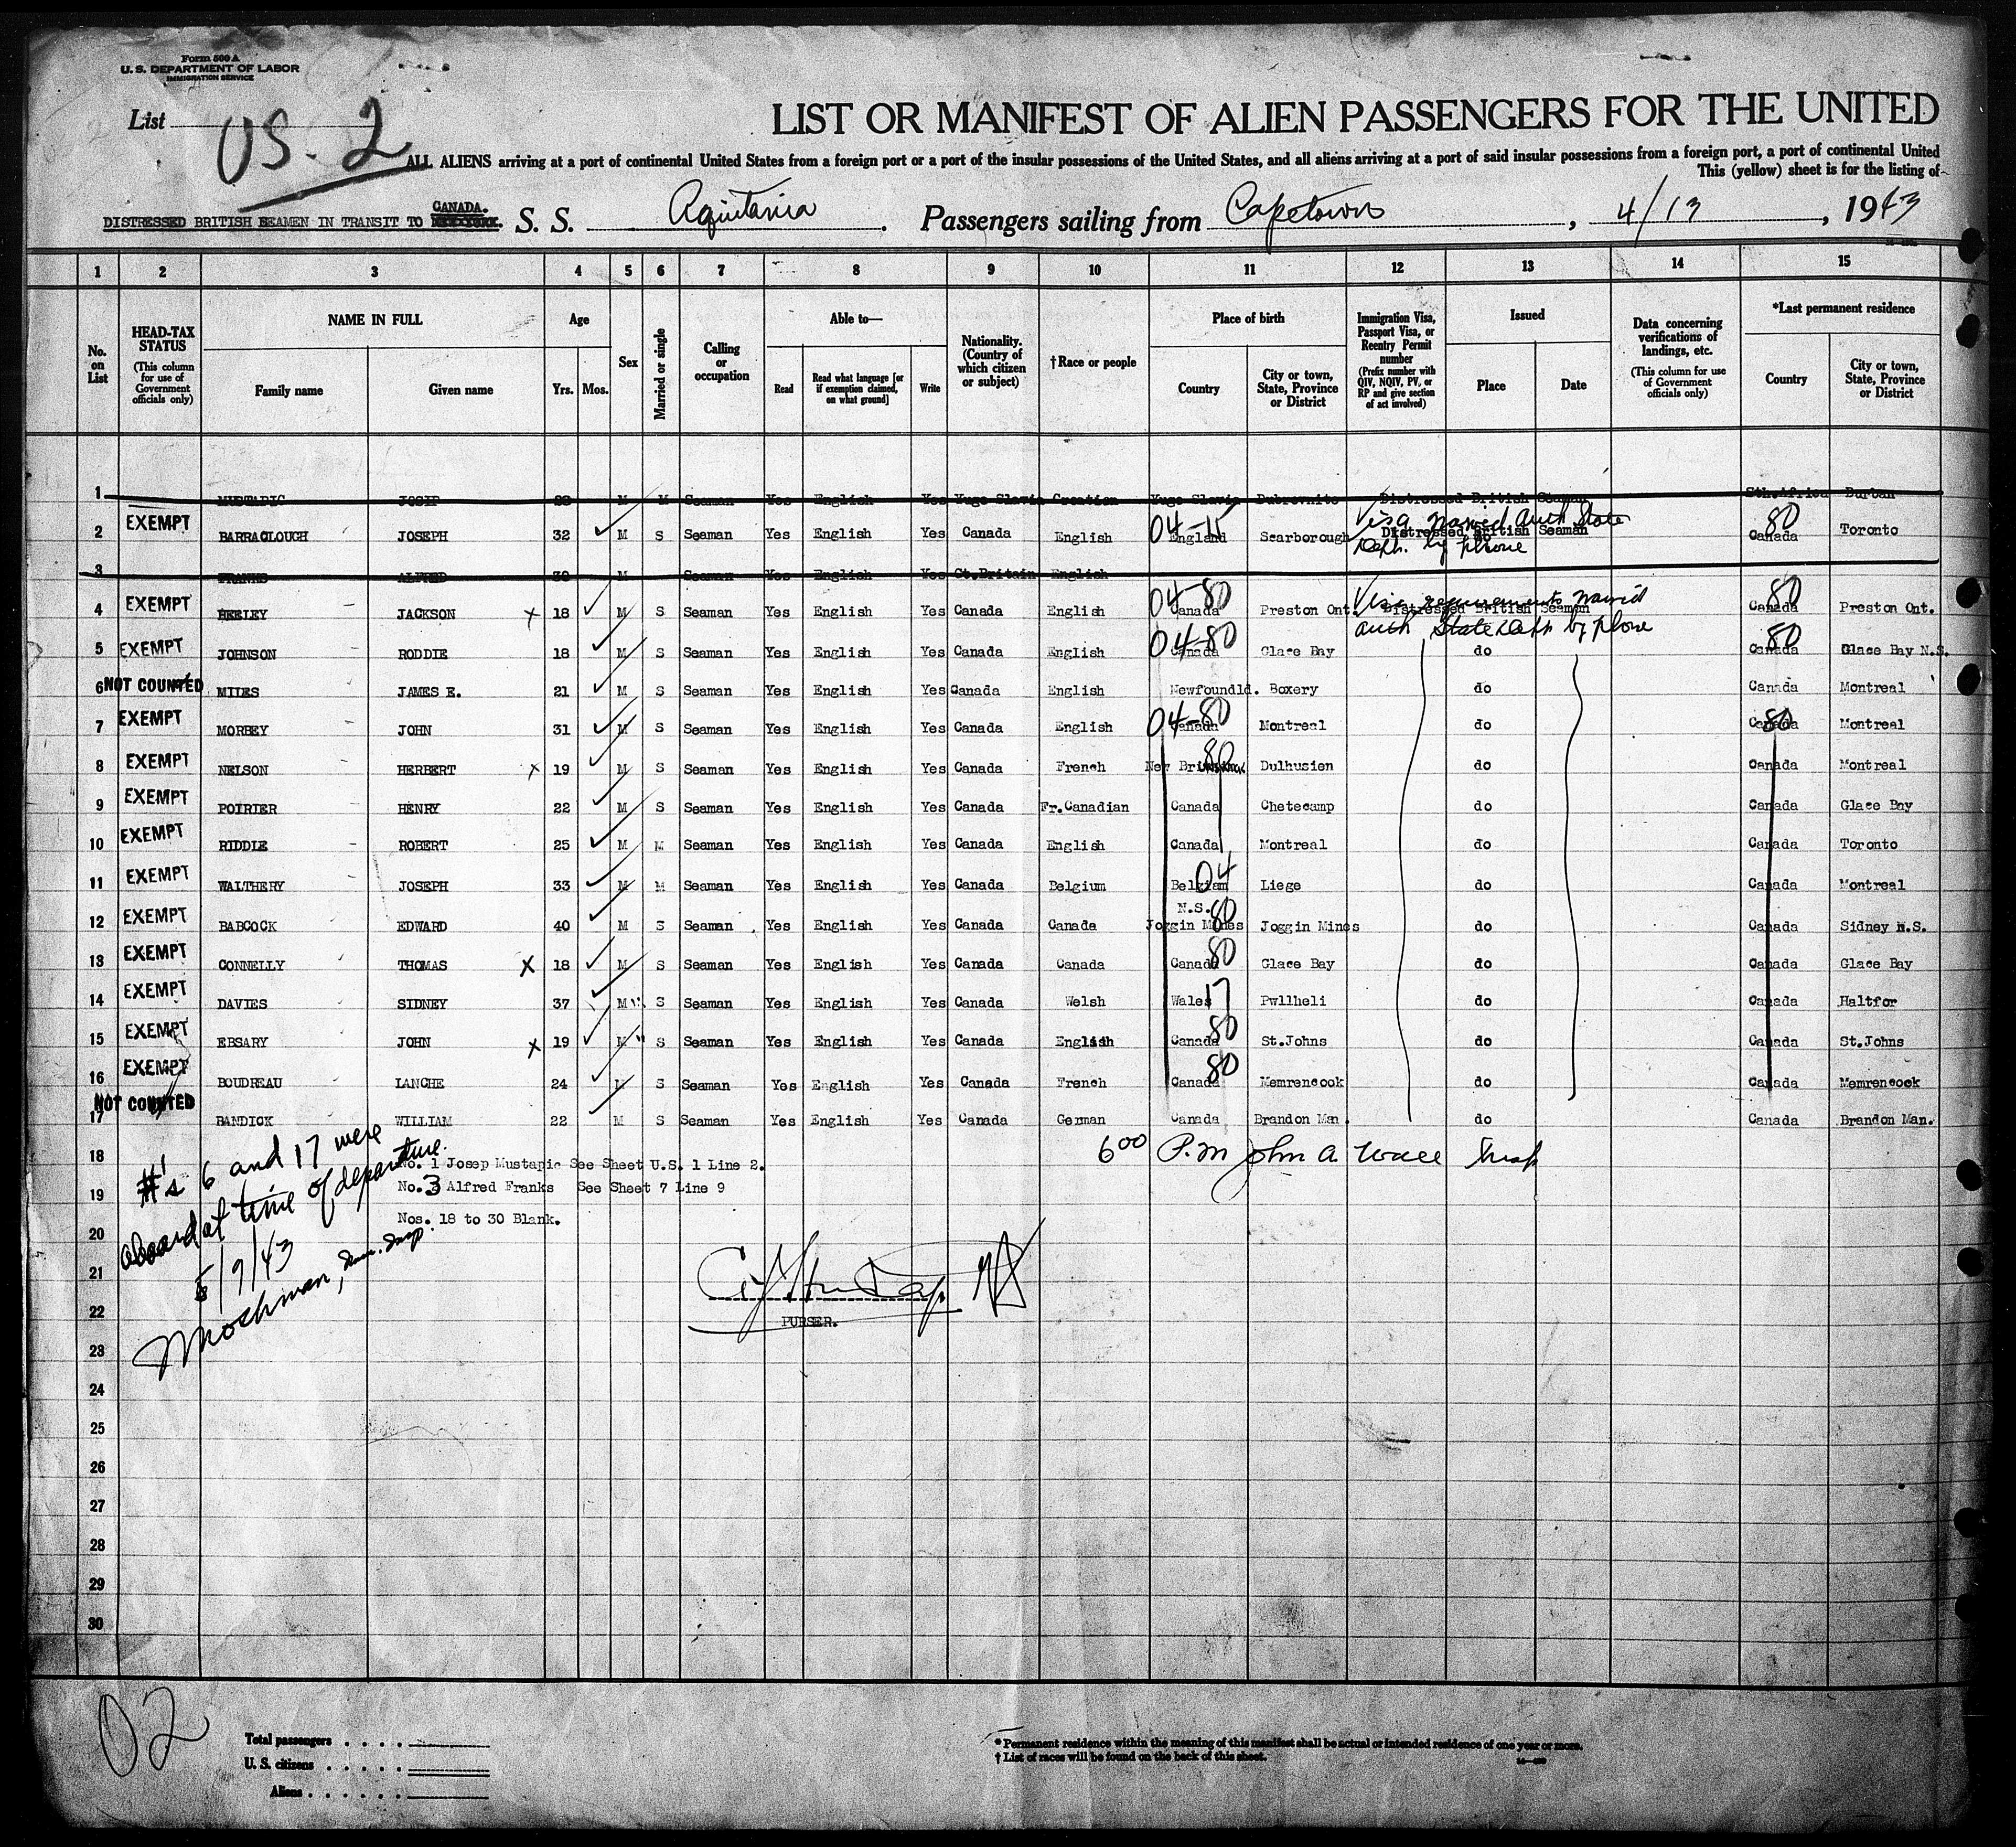 Form 500 A
U. S. DEPARTMENT OF LABOR
IMMIGRATION SERVICE
List US. 2
LIST OR MANIFEST OF ALIEN PASSENGERS FOR THE UNITED
ALL ALIENS arriving at a port of continental United States from a foreign port or a port of the insular possessions of the United States, and all aliens arriving at a port of said insular possessions from a foreign port, a port of continental United
This (yellow) sheet is for the listing of
DISTRESSED BRITISH SEAMEN IN TRANSIT TO CANADA. S. S. Aquitania. Passengers sailing from Capetown, 4/13, 1943
1 2 3 4 5 6 7 8 9 10 11 12 13 14 15
No. on List
HEAD-TAX STATUS (This column for use of Government officials only)
NAME IN FULL
Family name Given name
Age
Yrs. Mos.
Sex
Married or single
Calling or occupation
Able to—
Read
Read what language [or if exemption claimed, on what ground]
Write
Nationality. (Country of which citizen or subject)
†Race or people
Place of birth
Country
City or town, State, Province or District
Immigration Visa, Passport Visa, or Reentry Permit number (Prefix number with QIV, NQIV, PV, or RP and give section of act involved)
Issued
Place Date
Data concerning verifications of landings, etc. (This column for use of Government officials only)
*Last permanent residence
Country
City or town, State, Province or District
1 MUSTAPIC JOSIP M M Seaman Yes English Yes Yugo Slavia Croatian Yugo Slavia Dubrovnito Distressed British Seaman Sth.Africa Durban
2 EXEMPT BARRACLOUGH JOSEPH 32 M S Seaman Yes English Yes Canada English 04-15 England Scarborough Distressed British Seaman 80 Canada Toronto
Visa waived auth State Dept. by phone
3 FRANKS ALFRED M Seaman Yes English Yes Gt.Britain English
4 EXEMPT HEELEY JACKSON x 18 M S Seaman Yes English Yes Canada English 04-80 Canada Preston Ont. Distressed British Seaman 80 Canada Preston Ont.
Visa requirements waived auth State Dept by phone
5 EXEMPT JOHNSON RODDIE 18 M S Seaman Yes English Yes Canada English 04-80 Canada Glace Bay do 80 Canada Glace Bay N.S.
6 NOT COUNTED MILES JAMES E. 21 M S Seaman Yes English Yes Canada English Newfoundld. Boxery do Canada Montreal
7 EXEMPT MORBEY JOHN 31 M S Seaman Yes English Yes Canada English 04-80 Canada Montreal do 80 Canada Montreal
8 EXEMPT NELSON HERBERT x 19 M S Seaman Yes English Yes Canada French 80 New Dulhusien do Canada Montreal
9 EXEMPT POIRIER HENRY 22 M S Seaman Yes English Yes Canada Fr.Canadian Canada Chetecamp do Canada Glace Bay
10 EXEMPT RIDDLE ROBERT 25 M M Seaman Yes English Yes Canada English Canada Montreal do Canada Toronto
11 EXEMPT WALTHERY JOSEPH 33 M M Seaman Yes English Yes Canada Belgium 04 Belgian Liege do Canada Montreal
12 EXEMPT BABCOCK EDWARD 40 M S Seaman Yes English Yes Canada Canada N.S. 80 Joggin Mines Joggin Mines do Canada Sidney N.S.
13 EXEMPT CONNELLY THOMAS x 18 M S Seaman Yes English Yes Canada Canada 80 Canada Glace Bay do Canada Glace Bay
14 EXEMPT DAVIES SIDNEY 37 M S Seaman Yes English Yes Canada Welsh 17 Wales Pwllheli do Canada Haltfor
15 EXEMPT EBSARY JOHN x 19 M S Seaman Yes English Yes Canada English 80 Canada St.Johns do Canada St.Johns
16 EXEMPT BOUDREAU LANCHE 24 M S Seaman Yes English Yes Canada French 80 Canada Memrencook do Canada Memrencook
17 NOT COUNTED BANDICK WILLIAM 22 M S Seaman Yes English Yes Canada German Canada Brandon Man. do Canada Brandon Man.
18 No. 1 Josep Mustapic See Sheet U.S. 1 Line 2.
600 P.M John A. Insp
19 No. 3 Alfred Franks See Sheet 7 Line 9
Nos. 18 to 30 Blank.
#s 6 and 17 were
aboard at time of departure.
5/9/43
Imm. Insp.
20
21
22
PURSER.
23
24
25
26
27
28
29
30
02
Total passengers
U. S. citizens
Aliens
* Permanent residence within the meaning of this manifest shall be actual or intended residence of one year or more.
† List of races will be found on the back of this sheet.